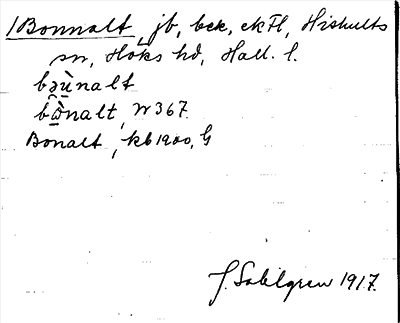 /Bonnalt, jb, bck, ekFl, Hishults
sn, Höks hd, Hall. l.
bəùnalt
bò̤nalt, W367.
Bonalt, kb1900, G
J. Sahlgren 1917.